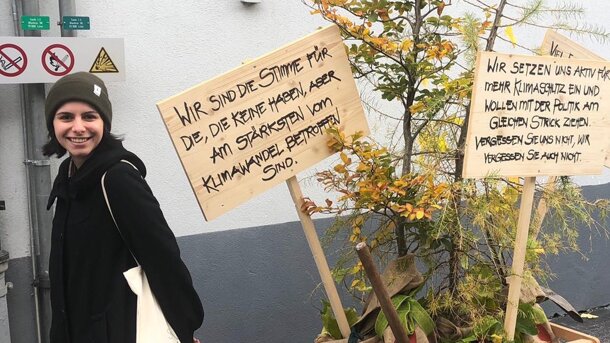 WIR SIND DIE STIMME FÜR
DE, DIE KEINE HABEN, ABER
AM STÄRKSTEN VOM
KLIMAWANDEL BETROFFEN
SIND.
WIR SETZEN UNS AKTIV FÜR
MEHR KLIMASCHUTZ EIN UND
WOLLEN MIT DER POLITIK AM
GLEICHEN STRICK ZIEHEN.
VERGESSEN SIE UNS NICHT, WIR
VERGESSEN SIE AUCH NICHT.